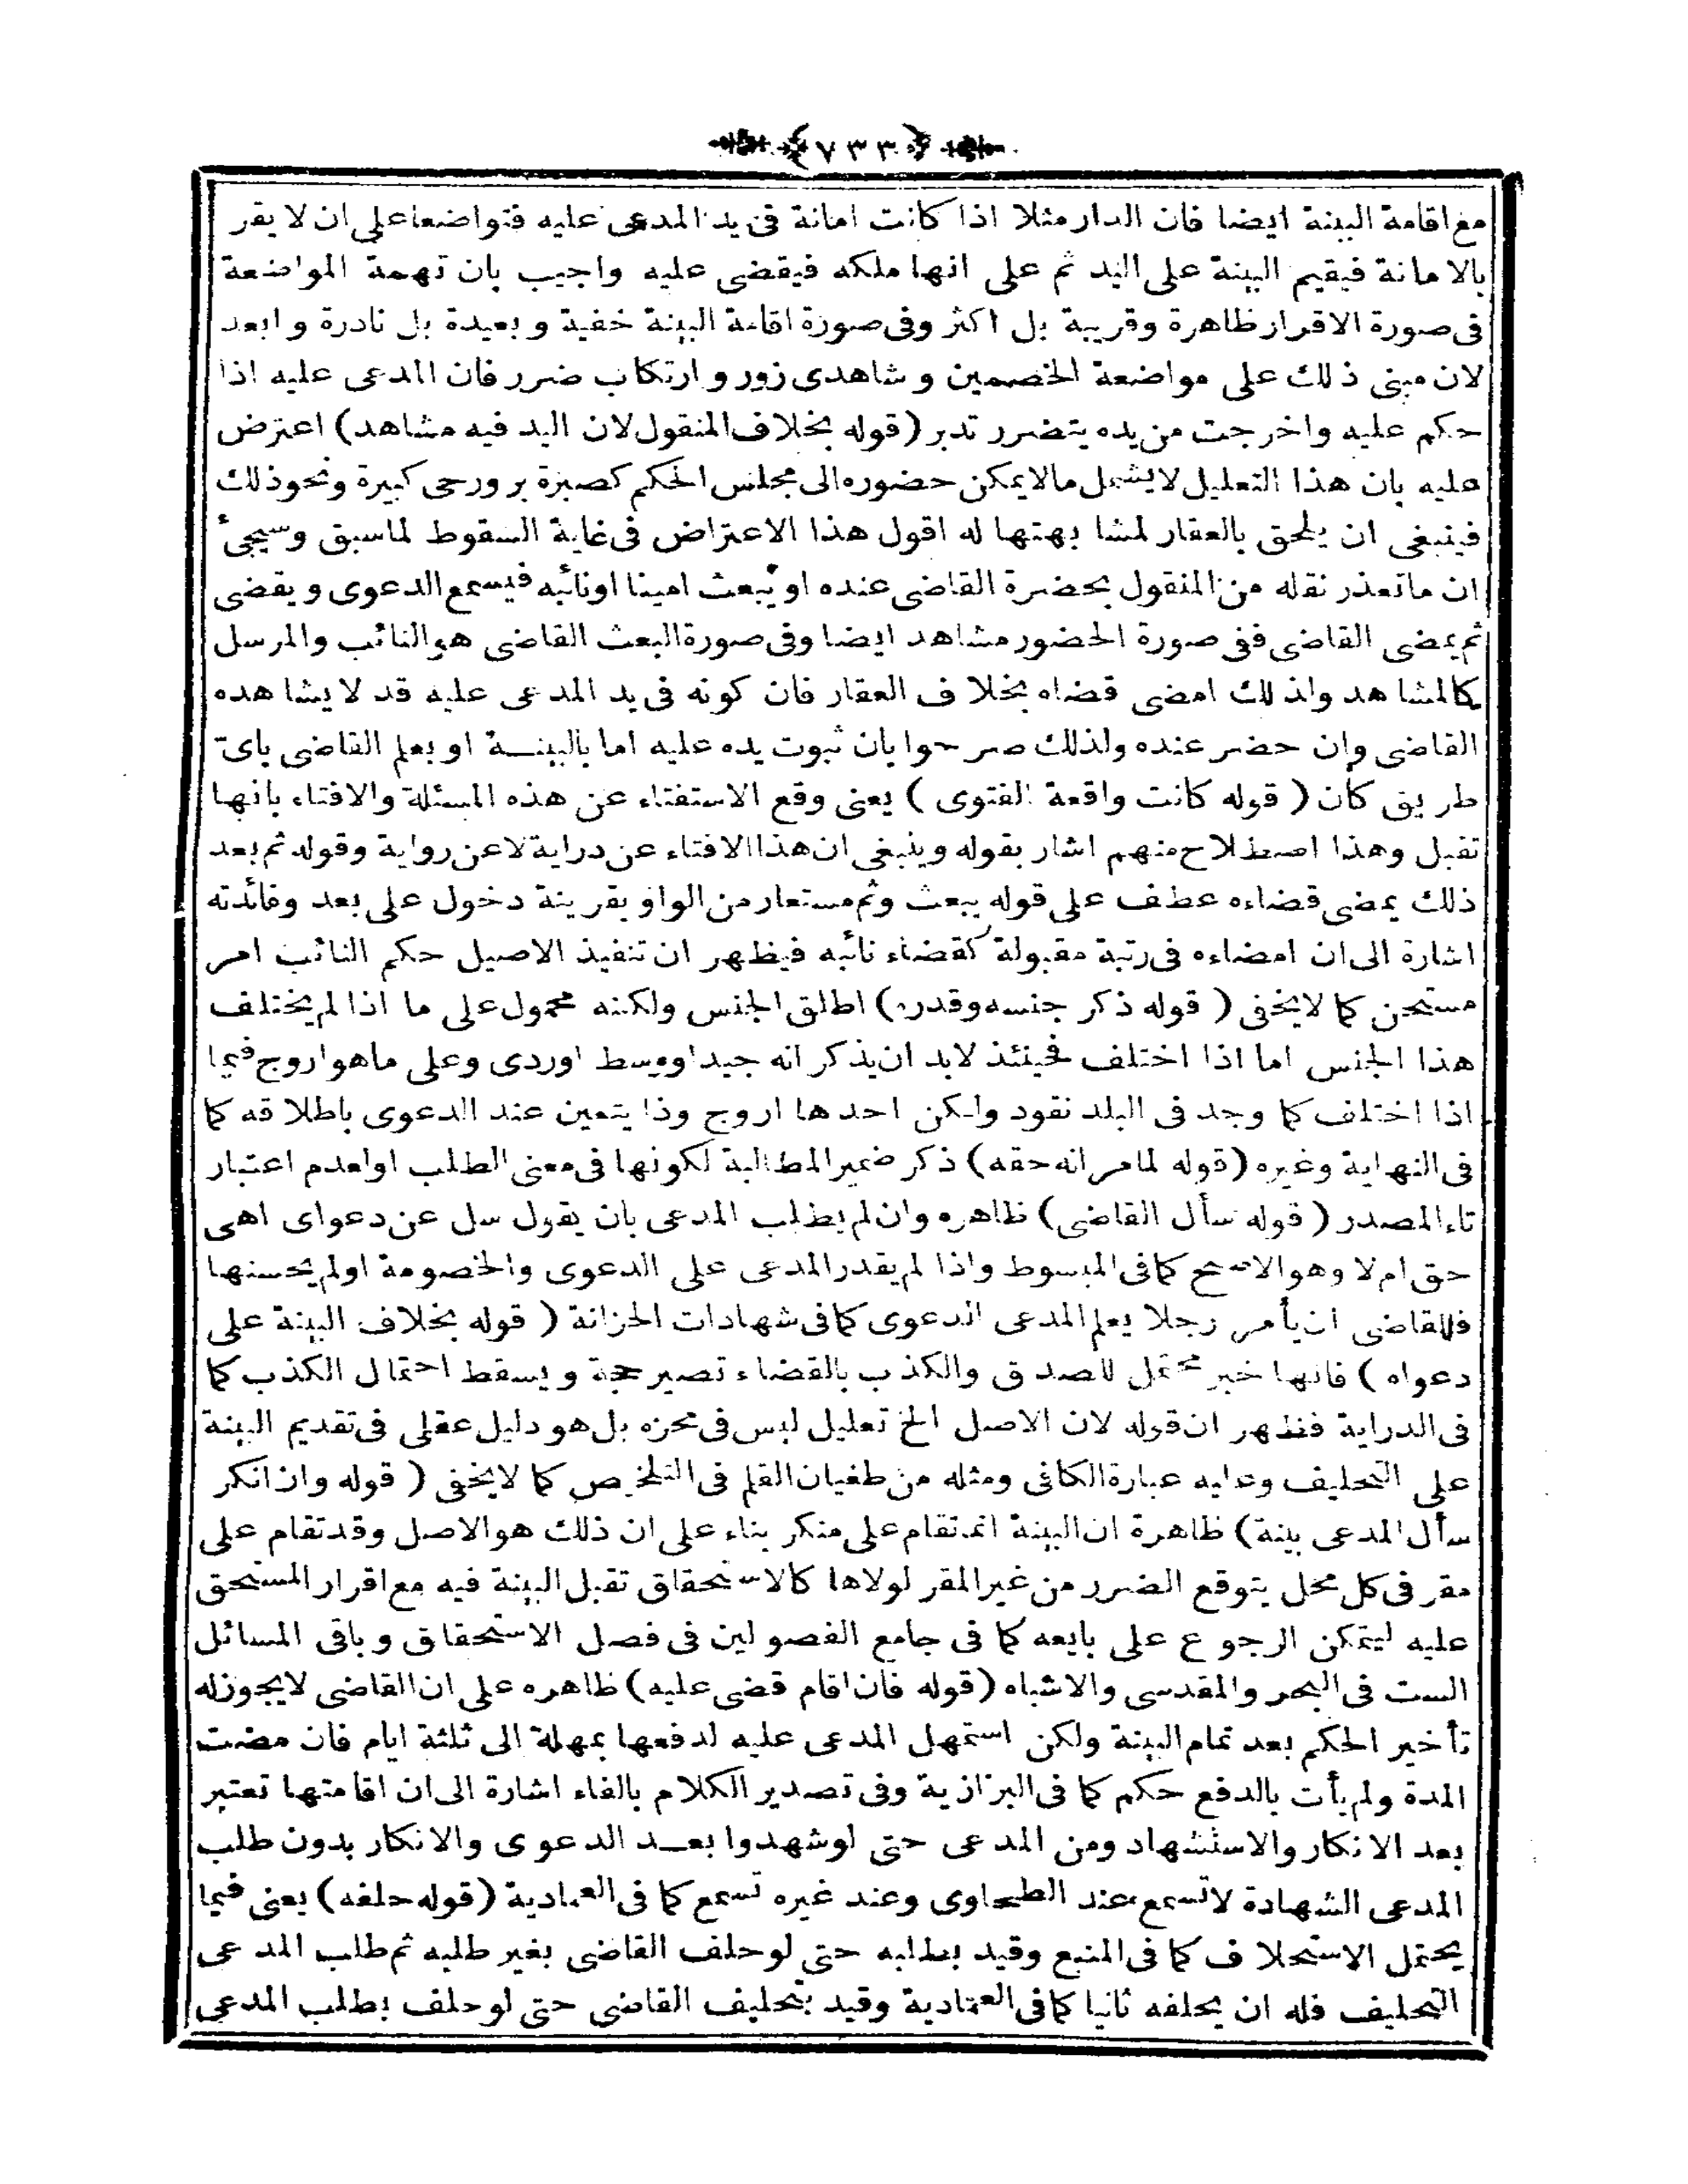 ٧٣٣
مع اقامة البينة ايضا فان الدار مثلا اذا كانت امانة فى يد المدعى عليه فتواضعا على ان لا يقر
بالامانة فيقيم البينة على اليد ثم على انها ملكه فيقضى عليه واجيب بان تهمة المواضعة
فى صورة الاقرار ظاهرة وقريبة بل اكثر وفى صورة اقامة البينة خفية وبعيدة بل نادرة وابعد
لان مبنى ذلك على مواضعة الخصمين وشاهدى زور وارتكاب ضرر فان المدعى عليه اذا
حكم عليه واخرجت من يده يتضرر تدبر (قوله بخلاف المنقول لان اليد فيه مشاهد) اعترض
عليه بان هذا التعليل لا يشمل مالا يمكن حضوره الى مجلس الحكم كصبرة بر ورحى كبيرة ونحو ذلك
فينبغى ان يلحق بالعقار لمشابهتها له اقول هذا الاعتراض فى غاية السقوط لما سبق وسيجئ
ان ما تعذر نقله من المنقول بحضرة القاضى عنده او يبعث امينا او نائبه فيسمع الدعوى ويقضى
ثم يمضى القاضى ففى صورة الحضور مشاهد ايضا وفى صورة البعث القاضى هو النائب والمرسل
كالمشاهد ولذلك امضى قضاه بخلاف العقار فان كونه فى يد المدعى عليه قد لا يشاهده
القاضى وان حضر عنده ولذلك صرحوا بان ثبوت يده عليه اما بالبينة او بعلم القاضى باى
طريق كان (قوله كانت واقعة الفتوى) يعنى وقع الاستفتاء عن هذه المسئلة والافتاء بانها
تقبل وهذا اصطلاح منهم اشار بقوله وينبغى ان هذا الافتاء عن دراية لا عن رواية وقوله ثم بعد
ذلك يمضى قضاءه عطف على قوله يبعث وثم مستعار من الواو بقرينة دخول على بعد وفائدته
اشارة الى ان امضاءه فى رتبة مقبولة كقضاء نائبه فيظهر ان تنفيذ الاصيل حكم النائب امر
مستحن كما لا يخفى (قوله ذكر جنسه وقدره) اطلق الجنس ولكنه محمول على ما اذا لم يختلف
هذا الجنس اما اذا اختلف فحينئذ لابد ان يذكر انه جيد او وسط او ردى وعلى ما هو اروج فيما
اذا اختلف كما وجد فى البلد نقود ولكن احدها اروج وذا يتعين عند الدعوى باطلاقه كما
فى النهاية وغيره (قوله لما مر انه حقه) ذكر ضمير المطالبة لكونها فى معنى الطلب او لعدم اعتبار
تاء المصدر (قوله سأل القاضى) ظاهره وان لم يطلب المدعى بان يقول سل عن دعواى اهى
حق ام لا وهو الاصح كما فى المبسوط واذا لم يقدر المدعى على الدعوى والخصومة او لم يحسنها
فللقاضى ان يأمر رجلا يعلم المدعى الدعوى كما فى شهادات الخزانة (قوله بخلاف البينة على
دعواه) فانها خبر محتمل للصدق والكذب بالقضاء تصير حجة ويسقط احتمال الكذب كما
فى الدراية فظهر ان قوله لان الاصل الخ تعليل ليس فى محزه بل هو دليل عقلى فى تقديم البينة
على التحليف وعليه عبارة الكافى ومثله من طغيان القلم فى التلخيص كما لا يخفى (قوله وان انكر
سأل المدعى بينة) ظاهرة ان البينة انما تقام على منكر بناء على ان ذلك هو الاصل وقد تقام على
مقر فى كل محل يتوقع الضرر من غير المقر لولاها كالاستحقاق تقبل البينة فيه مع اقرار المستحق
عليه ليتمكن الرجوع على بايعه كما فى جامع الفصولين فى فصل الاستحقاق وباقى المسائل
الست فى البحر والمقدسى والاشباه (قوله فان اقام قضى عليه) ظاهره على ان القاضى لا يجوز له
تأخير الحكم بعد تمام البينة ولكن استمهل المدعى عليه لدفعها بمهلة الى ثلثة ايام فان مضت
المدة ولم يأت بالدفع حكم كما فى البزازية وفى تصدير الكلام بالفاء اشارة الى ان اقامتها تعتبر
بعد الانكار والاستشهاد ومن المدعى حتى لو شهدوا بعد الدعوى والانكار بدون طلب
المدعى الشهادة لا تسمع عند الطحاوى وعند غيره تسمع كما فى العمادية (قوله حلفه) يعنى فيما
يحتمل الاستحلاف كما فى المنبع وقيد بطلبه حتى لو حلف القاضى بغير طلبه ثم طلب المدعى
التحليف فله ان يحلفه ثانيا كما فى العمادية وقيد بتحليف القاضى حتى لو حلف بطلب المدعى